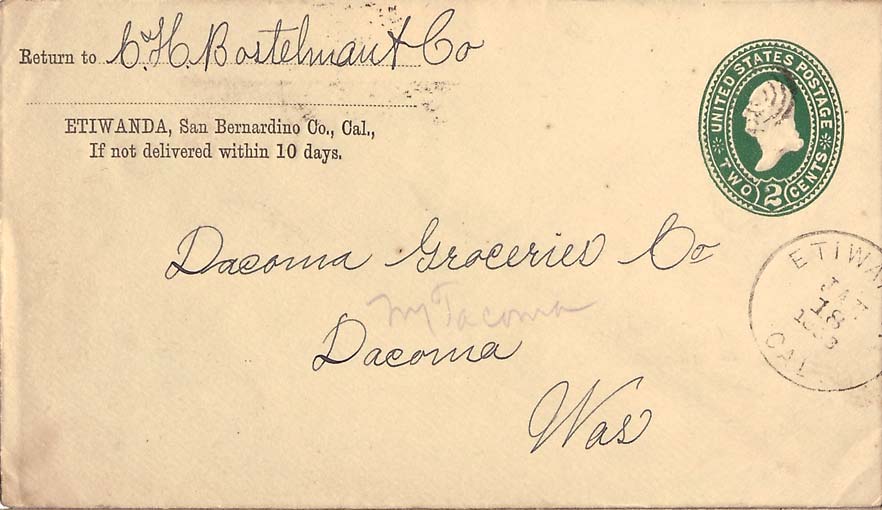 Return to C. H. Bostelman & Co
ETIWANDA, San Bernardino Co., Cal.,
If not delivered within 10 days.
UNITED STATES POSTAGE
TWO 2 CENTS
ETIWA
18
CAL
Dacoma Groceries Co
Tacoma
Dacoma
Was